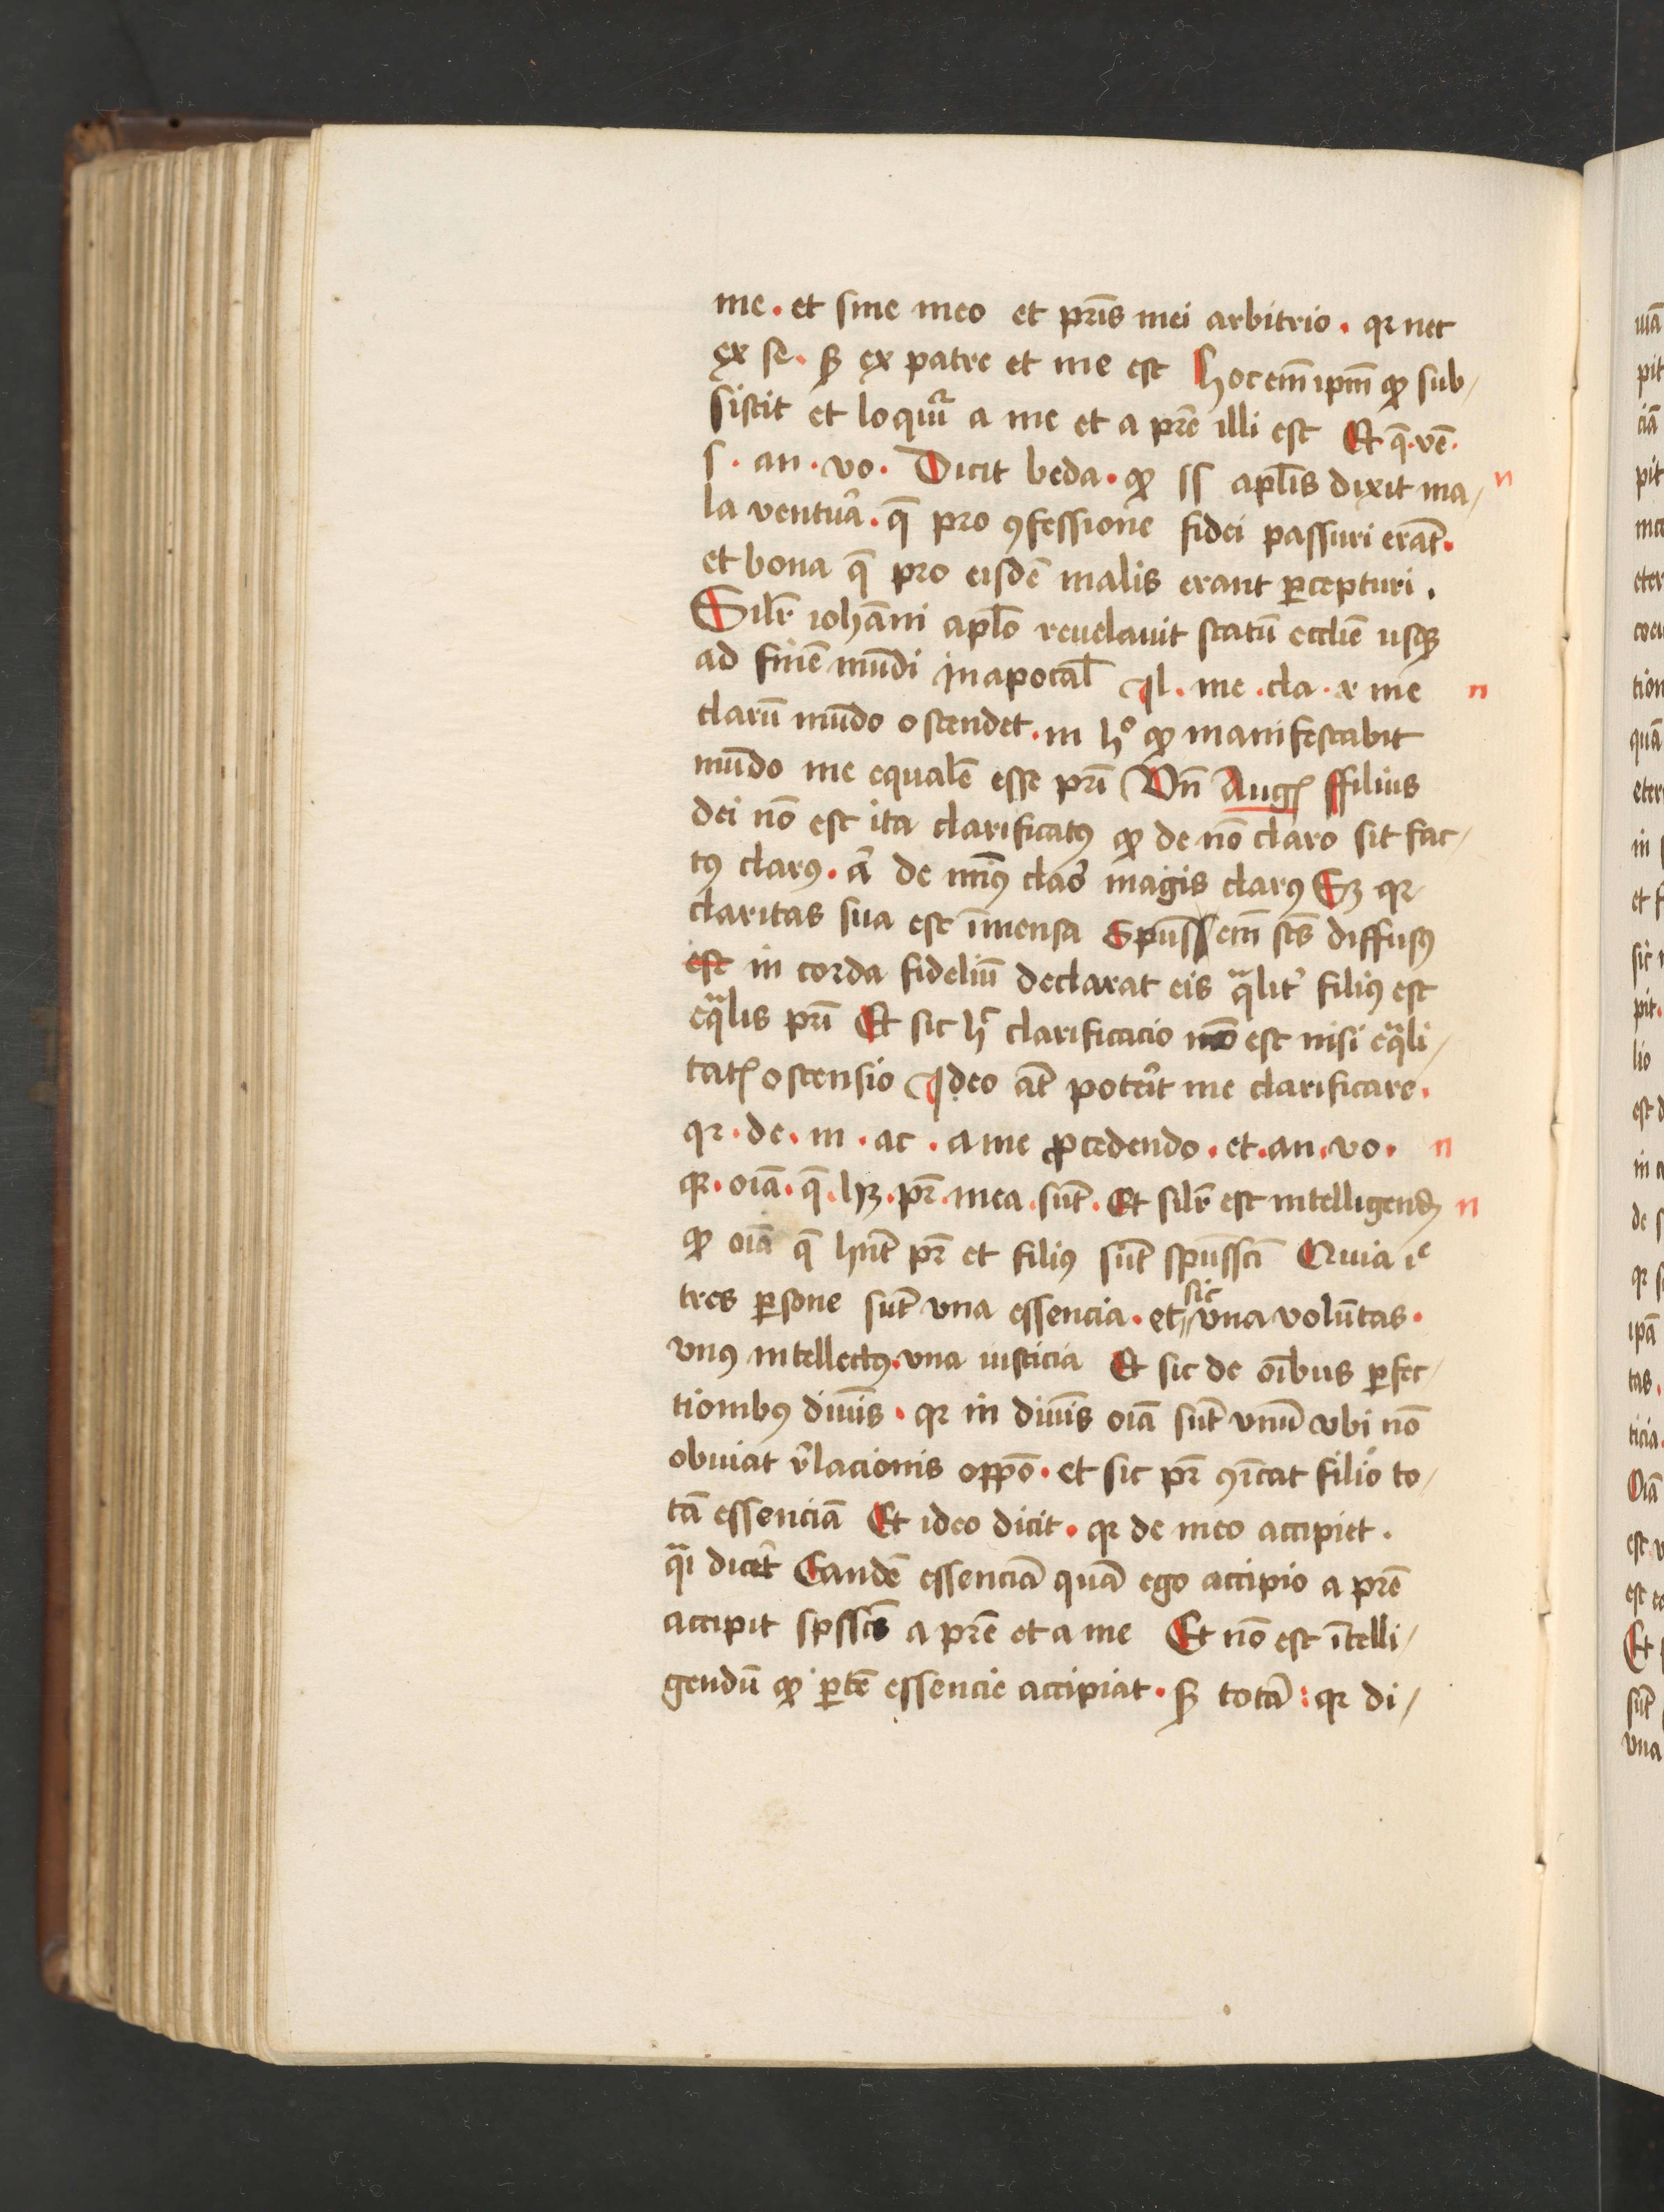 me . et sine meo et pr̅is mei arbitrio . qꝛ nec
ex se . sꝫ ex patre et me est Hoc em̅ ip̅m qꝫ sub/
sistit et loquit᷑ a me et a pr̅e illi est Et q̅ . ve̅ .
s . an . vo . Dicit beda . qꝫ ss ap̅lis dixit ma/
la ventu᷑a . q̅ pro ꝯfessione fidei passuri era̅t .
et bona q̅ pro eisde̅ malis erant ꝑcepturi .
Sil̅r ioha̅ni ap̅lo reuelauit statu̅ eccl̅ie usqꝫ
ad fine̅ mu̅di in apocal̅ Il . me . cla . x me
claru̅ mu̅do ostendet . in hº qꝫ manifestabit
mu̅do me equale̅ esse pr̅i Vn̅ Augꝰ ffilius
dei no̅ est ita clarificatꝰ qꝫ de no̅ claro sit fac/
tꝰ clarꝰ . a᷑ de minꝰ cla᷑o magis clarꝰ Sꝫ qꝛ
claritas sua est i̅mensa Spu̅s em̅ sc̅s diffusꝰ
est in corda fideliu̅ declarat eis qᷓlit᷑ filiꝰ est
eqᷓlis pr̅i Et sic h᷑ clarificacio no̅ est nisi eqᷓli/
tatꝭ ostensio Ideo a̅t pote᷑it me clarificare .
qꝛ . de . m . ac . a me ꝓcedendo . et . an . vo .
qꝛ . oi̅a . q̅ . hꝫ . pr̅ . mea . su̅t . Et sil̅r est intelligendꝫ
qꝫ oi̅a q̅ hn̅t pr̅ et filiꝰ su̅t spu̅ssc̅i Quia
tres ꝑsone su̅t vna essencia . et sic vna volu̅tas .
vnꝰ intellectꝰ . vna iusticia Et sic de oi̅bus ꝑfec/
tionibꝰ diui̅s . qꝛ in diui̅s oi̅a su̅t vnu̅ vbi no̅
obuiat r᷑lacionis oppo̅ . et sic pr̅ ꝯi̅cat filio to/
ta̅ essencia̅ Et ideo dicit . qꝛ de meo accipiet .
qᷓi dice᷑t Eande̅ essencia̅ qua̅ ego accipio a pr̅e
accipit spssc̅s a pr̅e et a me Et no̅ est i̅telli/
gendu̅ qꝫ ꝑte̅ essencie accipiat . sꝫ tota̅ : qꝛ di/
n
n
n
n